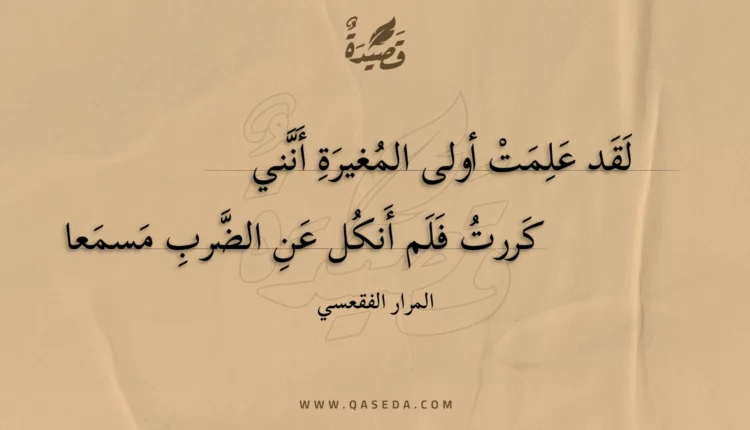 قَصِيْدَةٌ
لَقَد عَلِمَتْ أولى المُغيرَةِ أَنَّني
كَررتُ فَلَم أَنكُل عَنِ الضَّربِ مَسمَعا
المرار الفقعسي
WWW.QASEDA.COM